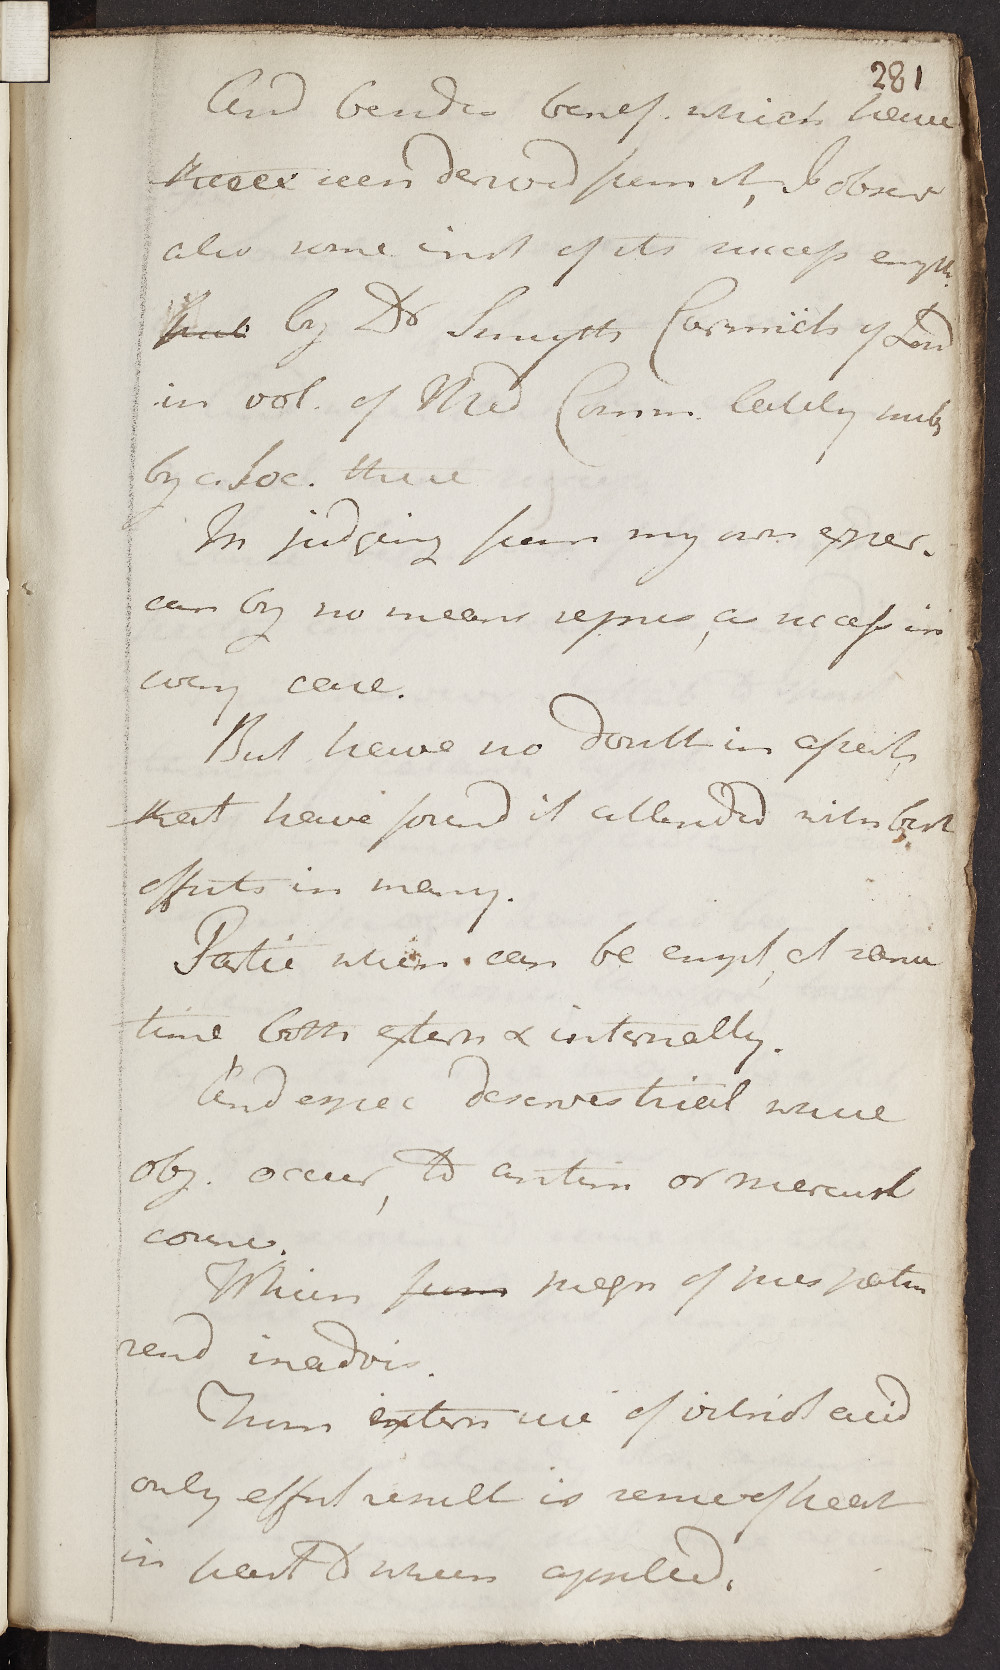 281
And besides benef. which have
seen derived from it, I observ
also some inst of its success
by Dr Smyth Carmich of Lond
in vol. of Med Comm. lately pub
by a Soc. there
In judging from my own exper.
can by no means repres, as necess in
every case.
But have no doubt in assert,
that have found it attended with best
effects in many.
Partic when can be empl, at same
time, both extern & internally.
And espec deserves trial where
obj. occur, to antim or mercurl
course.
When pregn of
rend inadvis.
From extern use of vitriol acid
only effect result is sense of heat
in part to which applied.